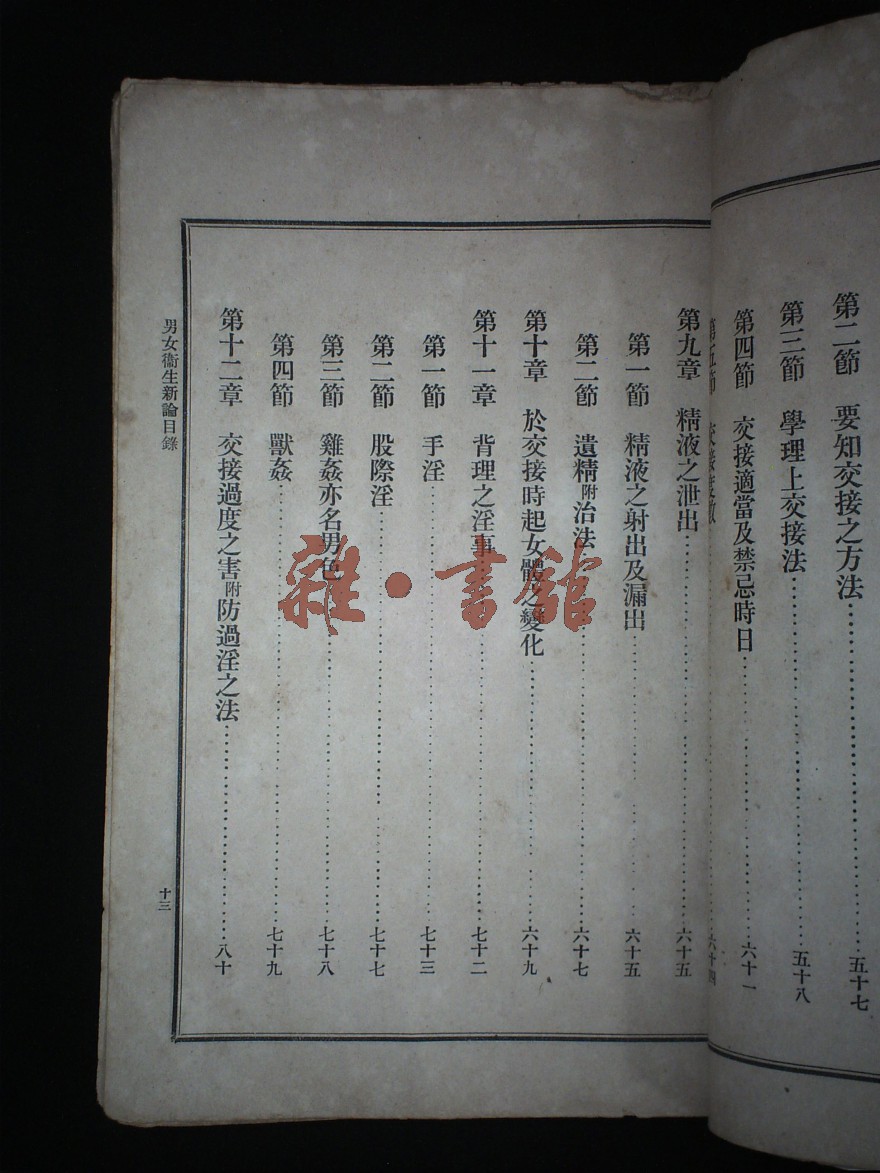 第二節　要知交接之方法……五十七
第三節　學理上交接法……五十八
第四節　交接適當及禁忌時日……六十一
第五節　交接度數……六十四
第九章　精液之泄出……六十五
第一節　精液之射出及漏出……六十五
第二節　遺精附治法……六十七
第十章　於交接時起女體之變化……六十九
第十一章　背理之淫事……七十二
第一節　手淫……七十三
第二節　股際淫……七十七
第三節　雞姦亦名男色……七十八
第四節　獸姦……七十九
第十二章　交接過度之害附防過淫之法……八十
男女衞生新論目錄
十三
雜·書館